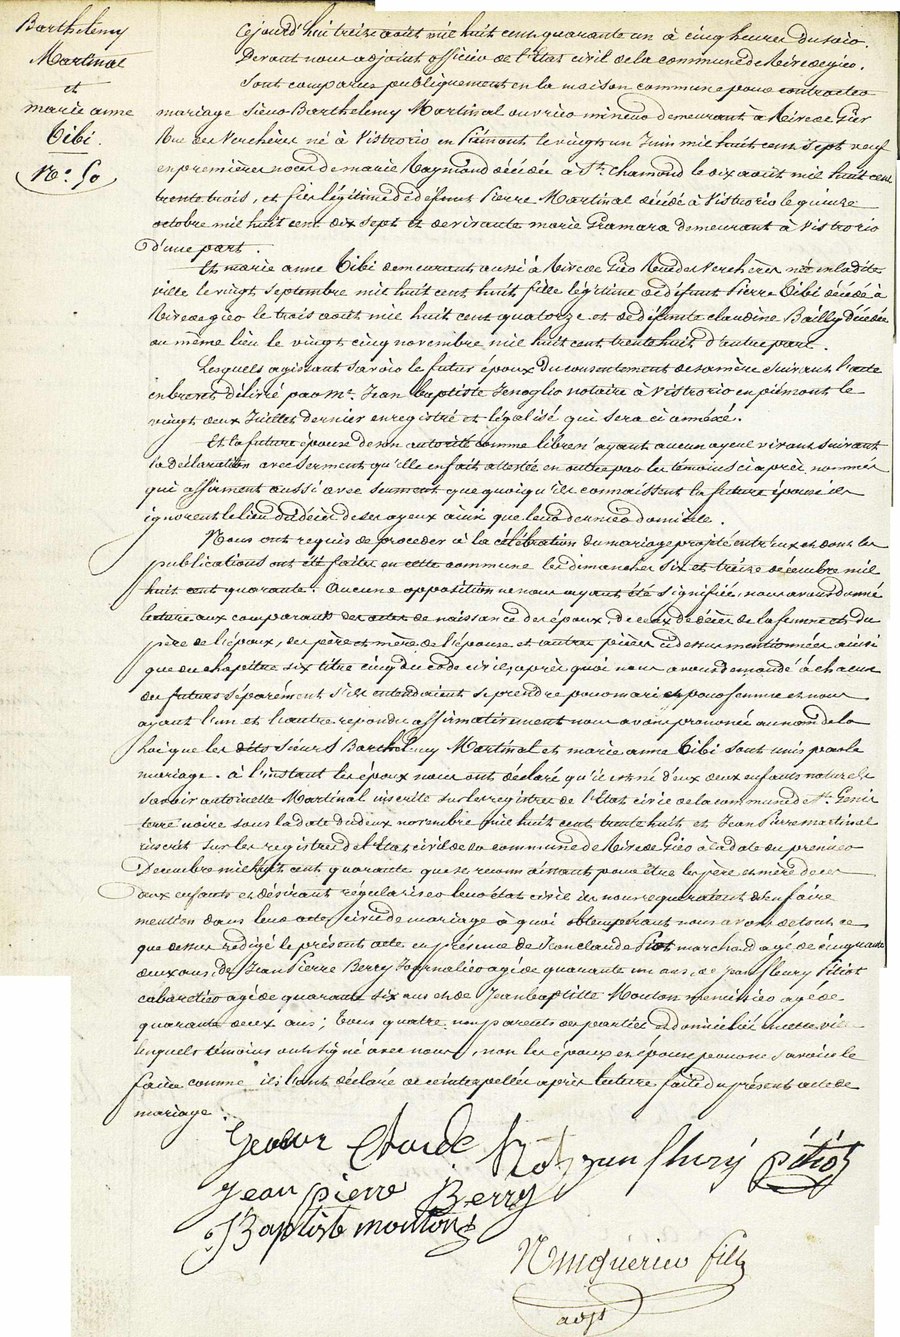 Barthelemy
Martinal
et
marie anne
Tibi.
N.° 50
Cejourd'hui treize août mil huit cent quarante un à cinq heures du soir.
Devant nous adjoint officier de l'Etat civil de la commune de Rive de gier.
Sont comparus publiquement en la maison commune pour contracter
mariage Sieur Barthelemy Martinal ouvrier mineur demeurant à Rive de Gier
Rue des Verchères né à Vistrorio en Piémont le vingt un Juin mil huit cent sept veuf
en premières noces de marie Raymond décédée à St. Chamond le dix août mil huit cent
trente trois, et fils légitime de défunt Pierre Martinal décédé à Vistrorio le quinze
octobre mil huit cent dix sept et de vivante marie Gramara demeurant à Vistrorio
d'une part.
Et marie anne Tibi demeurant aussi à Rive de Gier Rue des Verchères née en la dite
ville le vingt Septembre mil huit cent huit fille légitime de défunt Pierre Tibi décédé à
Rive de gier le trois août mil huit cent quatorze et de défunte claudine Bailly Décédée
au même lieu le vingt cinq novembre mil huit cent trente huit d'autre part.
Lesquels agissant savoir le futur époux du consentement de sa mère suivant l'acte
en brevet délivré par Me. Jean Baptiste Fenoglio notaire à Vistrorio en piémont le
vingt deux Juillet dernier enregistré et légalisé qui sera ci annéxé.
Et la future épouse de son autorité comme libre n'ayant aucun ayeul vivant suivant
la déclaration avec serment qu'elle en fait attestée en outre par les témoins ci après nommés
qui affirment aussi avec serment que quoiqu'ils connaissent la future épouse ils
ignorent le lieu du décès de ses ayeux ainsi que leur dernier domicile.
Nous ont requis de proceder à la célébration du mariage projeté entr'eux et dont les
publications ont été faites en cette commune les dimanches six et treize décembre mil
huit cent quarante. Aucune opposition ne nous ayant été signifiée, nous avons donné
lecture aux comparants des actes de naissance des époux, de ceux de décès de la femme et du
père de l'époux, des père et mère de l'épouse et autres pièces ci dessus mentionnées ainsi
que du chapitre six titre cinq du code civil, après quoi nous avons demandé à chacun
des futurs séparément s'ils entendaient se prendre pour mari et pour femme et nous
ayant l'un et l'autre repondu affirmativement nous avons prononcé au nom de la
loi que les dits Sieurs Barthelemy Martinal et marie anne Tibi sont unis par le
mariage. à l'instant les époux nous ont déclaré qu'il est né d'eux deux enfants naturels
savoir antoinette Martinal inscrite sur les registres de l'Etat civil de la commune de St. Genis
terre noire sous la date du deux novembre mil huit cent trente huit et Jean Pierre martinal
inscrit sur les registres de l'Etat civil de la commune de Rive de Gier à la date du premier
Décembre mil huit cent quarante que se reconnaissant pour être les père et mère de ces
deux enfants et désirant régulariser leur état civil ils nous requeraient d'en faire
mention dans leur acte civil de mariage à quoi obtempérant nous avons de tout ce
que dessus rédigé le présent acte en présence de Jean claude Piot marchand agé de cinquante
deux ans, de Jean Pierre Berry Journalier agé de quarante un ans, de Jean fleury Pitiot
cabaretier agé de quarante six ans et de Jean baptiste Mouton menuisier agé de
quarante deux ans; Tous quatre non parents des parties et domiciliés en cette ville
lesquels témoins ont signé avec nous, non les époux et épouse pour ne savoir le
faire comme ils l'ont déclaré de ce interpellés après lecture faite du présent acte de
mariage.
Jean Claude Piot jean fleury pitiot
Jean pierre Berry
J Baptiste mouton
fils
adjt